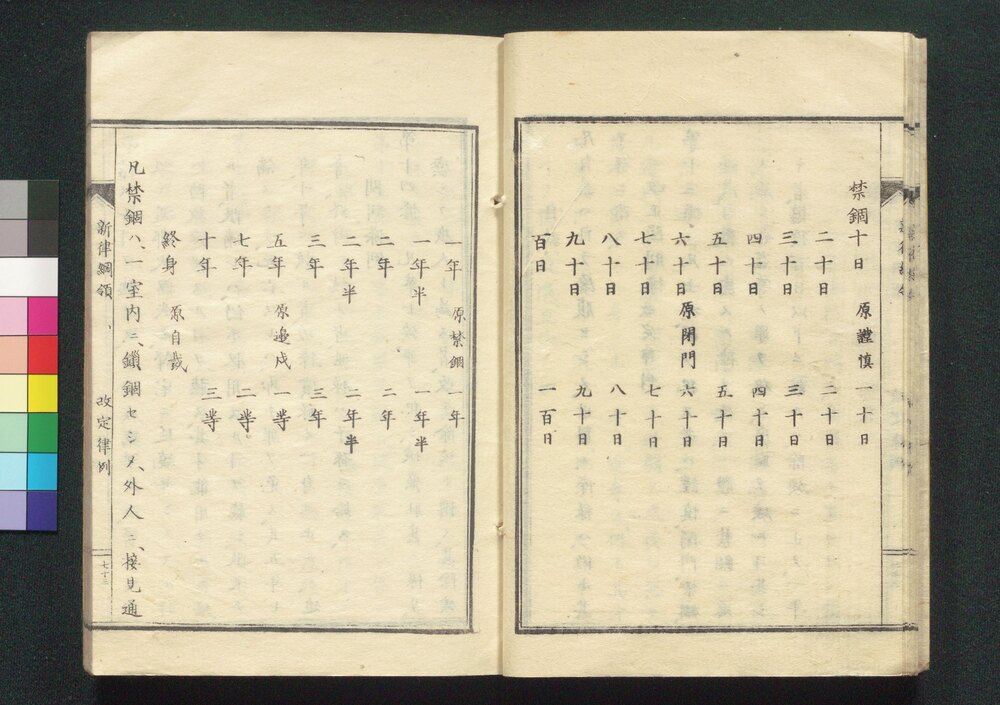 禁錮十日 原謹慎一十日
二十日 二十日
三十日 三十日
四十日 四十日
五十日 五十日
六十日 原閉門 六十日
七十日 七十日
八十日 八十日
九十日 九十日
百日 一百日
一年 原禁錮 一年
一年半 一年半
二年 二年
二年半 二年半
三年 三年
五年 原邊戍 一等
七年 二等
十年 三等
終身 原自裁
凡禁錮ハ、一室内ニ、鎖錮セシメ、外人ニ、接見通
新律綱領 改定律例 七十三